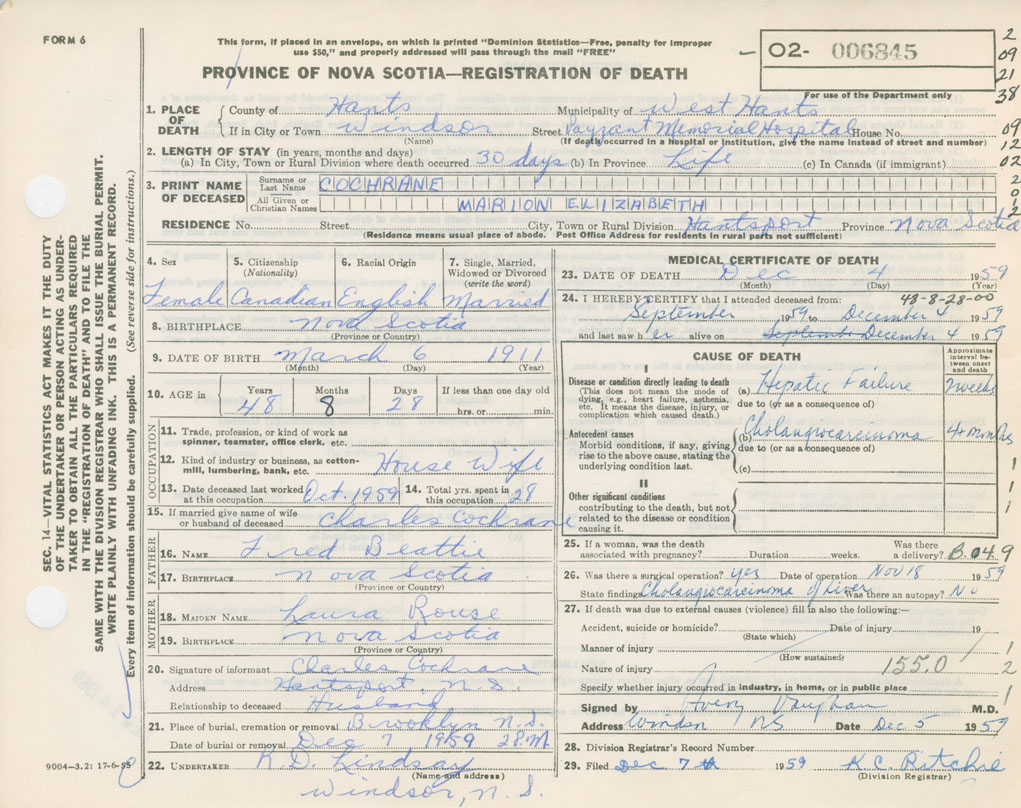 FORM 6
This form, if placed in an envelope, on which is printed "Dominion Statistics—Free, penalty for improper
use $50," and properly addressed will pass through the mail "FREE"
PROVINCE OF NOVA SCOTIA—REGISTRATION OF DEATH
02- 006845
For use of the Department only
2
09
21
38
09
12
02
2
0
1
2
SEC. 14—VITAL STATISTICS ACT MAKES IT THE DUTY
OF THE UNDERTAKER OR PERSON ACTING AS UNDER-
TAKER TO OBTAIN ALL THE PARTICULARS REQUIRED
IN THE "REGISTRATION OF DEATH" AND TO FILE THE
SAME WITH THE DIVISION REGISTRAR WHO SHALL ISSUE THE BURIAL PERMIT.
WRITE PLAINLY WITH UNFADING INK. THIS IS A PERMANENT RECORD.
Every item of information should be carefully supplied. (See reverse side for instructions.)
1. PLACE OF DEATH County of Hants Municipality of West Hants
If in City or Town Windsor Street Payzant Memorial Hospital House No.
(Name) (If death occurred in a Hospital or Institution, give the name instead of street and number)
2. LENGTH OF STAY (in years, months and days)
(a) In City, Town or Rural Division where death occurred 30 days (b) In Province Life (c) In Canada (if immigrant)
3. PRINT NAME OF DECEASED Surname or Last Name COCHRANE
All Given or Christian Names MARION ELIZABETH
RESIDENCE No. Street City, Town or Rural Division Hantsport Province Nova Scotia
(Residence means usual place of abode. Post Office Address for residents in rural parts not sufficient)
4. Sex 5. Citizenship (Nationality) 6. Racial Origin 7. Single, Married, Widowed or Divorced (write the word)
Female Canadian English Married
8. BIRTHPLACE Nova Scotia
(Province or Country)
9. DATE OF BIRTH March 6 1911
(Month) (Day) (Year)
10. AGE in Years Months Days If less than one day old
48 8 28 hrs. or min.
OCCUPATION
11. Trade, profession, or kind of work as
spinner, teamster, office clerk, etc.
12. Kind of industry or business, as cotton-
mill, lumbering, bank, etc. House Wife
13. Date deceased last worked at this occupation Oct. 1959 14. Total yrs. spent in this occupation 28
15. If married give name of wife
or husband of deceased Charles Cochrane
FATHER
16. NAME Fred Beattie
17. BIRTHPLACE Nova Scotia
(Province or Country)
MOTHER
18. MAIDEN NAME Laura Rouse
19. BIRTHPLACE Nova Scotia
(Province or Country)
20. Signature of informant Charles Cochrane
Address Hantsport, N.S.
Relationship to deceased Husband
21. Place of burial, cremation or removal Brooklyn N.S.
Date of burial or removal Dec 7 1959
22. UNDERTAKER K.D. Lindsay
(Name and address)
Windsor, N.S.
9004—3.2: 17-6-58
MEDICAL CERTIFICATE OF DEATH
23. DATE OF DEATH Dec 4 1959
(Month) (Day) (Year)
24. I HEREBY CERTIFY that I attended deceased from: 48-8-28-00
September 1959 to December 4 1959
and last saw h er alive on September December 4 1959
CAUSE OF DEATH
Approximate interval between onset and death
I
Disease or condition directly leading to death (a) Hepatic Failure 2 weeks
(This does not mean the mode of
dying, e.g., heart failure, asthenia, due to (or as a consequence of)
etc. It means the disease, injury, or
complication which caused death.)
Antecedent causes (b) Cholangiocarcinoma 4 months
Morbid conditions, if any, giving due to (or as a consequence of)
rise to the above cause, stating the
underlying condition last. (c)
1
II
1
Other significant conditions
contributing to the death, but not 1
related to the disease or condition
causing it.
25. If a woman, was the death
associated with pregnancy? Duration weeks. Was there a delivery? B.049
26. Was there a surgical operation? yes Date of operation Nov 18 1959
State findings Cholangiocarcinoma of Liver Was there an autopsy? No
27. If death was due to external causes (violence) fill in also the following:—
Accident, suicide or homicide? Date of injury 19
(State which)
Manner of injury 1
(How sustained)
Nature of injury 155.0 2
Specify whether injury occurred in industry, in home, or in public place 1
Signed by Avery Vaughan M.D.
Address Windsor NS Date Dec 5 1959
28. Division Registrar's Record Number
29. Filed Dec 7th 1959 K.C. Ritchie
(Division Registrar)